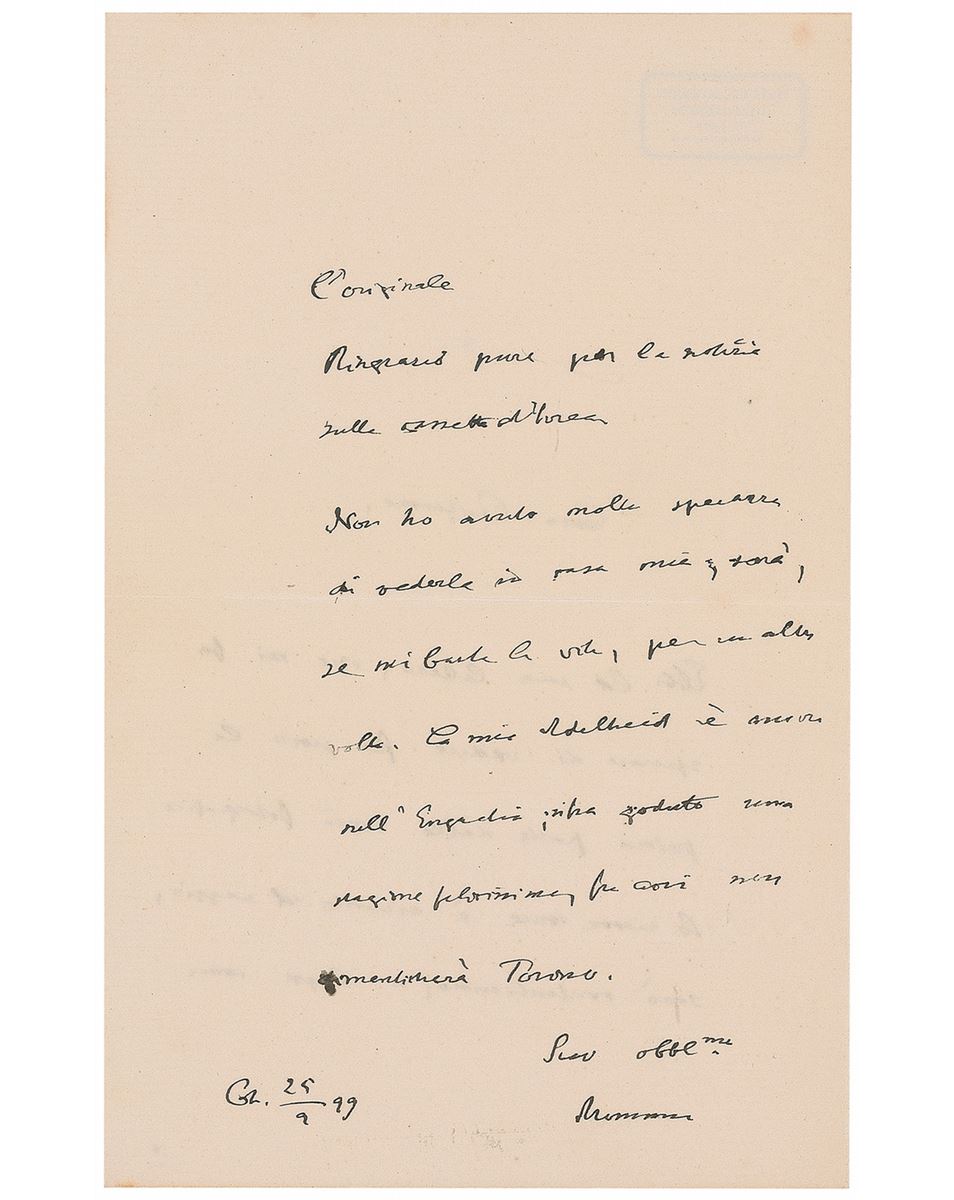 l'originale
Ringrazio pure per la notizia
sulla cassetta d'Ivrea
Non ho avuto molta speranza
di vederla in casa mia, sarà,
se mi basta la vita, per un altra
volta. La mia Adelheid è ancora
nell' Engadin, ha goduto una
stagione felicissima, fra cui non
dimenticherà Torino.
Suo obbl.mo
Mommsen
Ch. 25/9 99